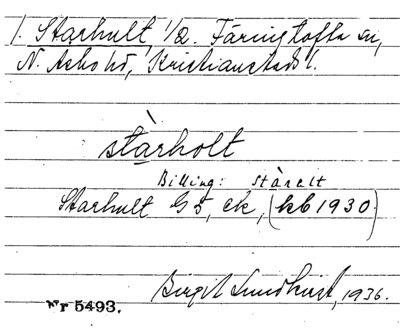 1. Starhult, 1/2. Färingtofta sn,
N. Åsbo hd, Kristianstads l.
stàrholt
Billing: stàrelt
Starhult G 5, ek, (kb 1930)
Birgit Lundkvist, 1936.
Nr 5493.